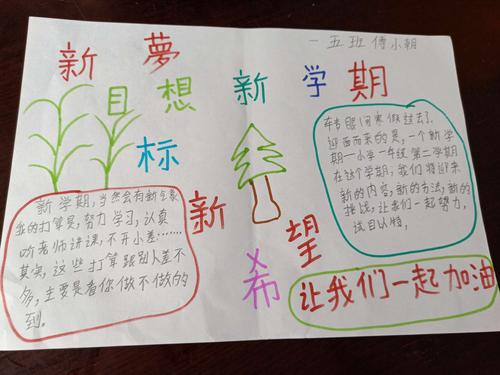 一五班傅小朝
新夢
目想新学期
标
新
希望
新学期,当然会有新气象
我的打算是,努力学习,认真
听老师讲课,不开小差……
其实,这些打算跟别人差不
多,主要是看你做不做的
到。
转眼间寒假过去了,
迎面而来的是,一个新学
期一小学一年级第二学期
在这个学期,我们将迎来
新的内容,新的方法,新的
挑战,让我们一起努力,
试目以待,
让我们一起加油